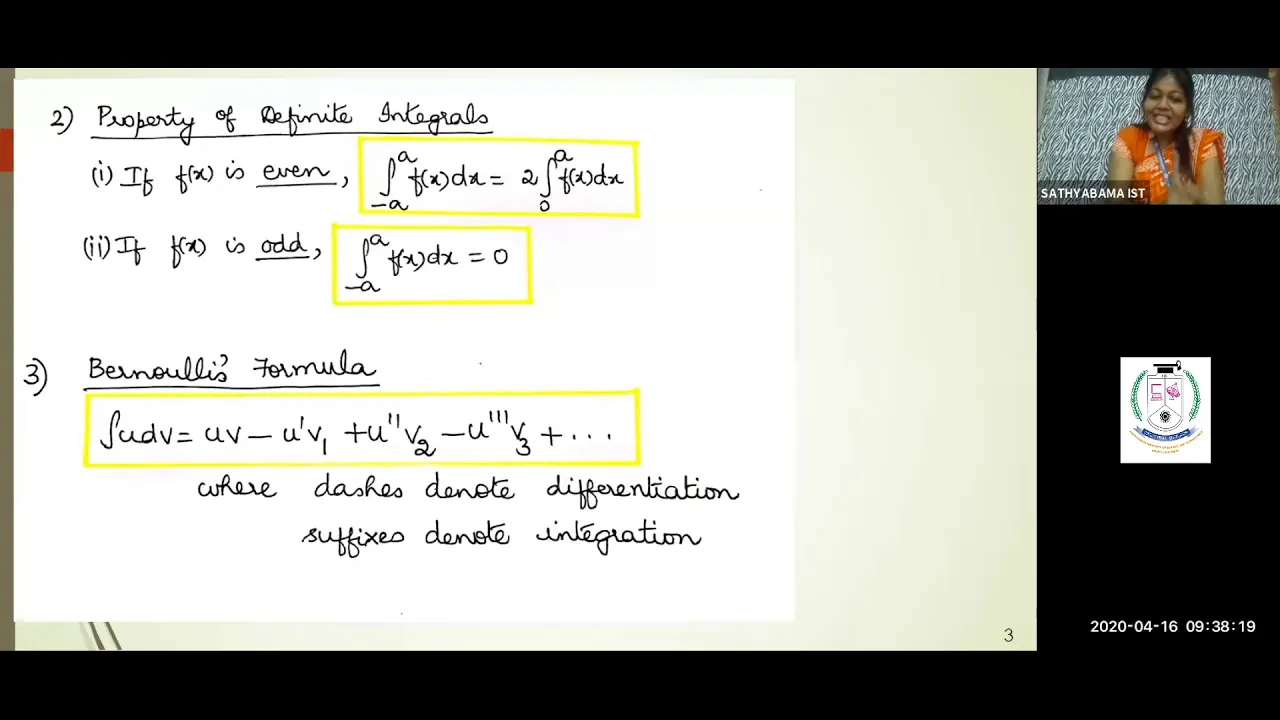 2) Property of Definite Integrals
(i) If f(x) is even, ∫₋ₐᵃ f(x)dx = 2∫₀ᵃ f(x)dx
(ii) If f(x) is odd, ∫₋ₐᵃ f(x)dx = 0
3) Bernoulli's Formula
∫udv = uv – u'v₁ + u''v₂ – u'''v₃ + ...
where dashes denote differentiation
suffixes denote integration
3
SATHYABAMA IST
2020-04-16 09:38:19